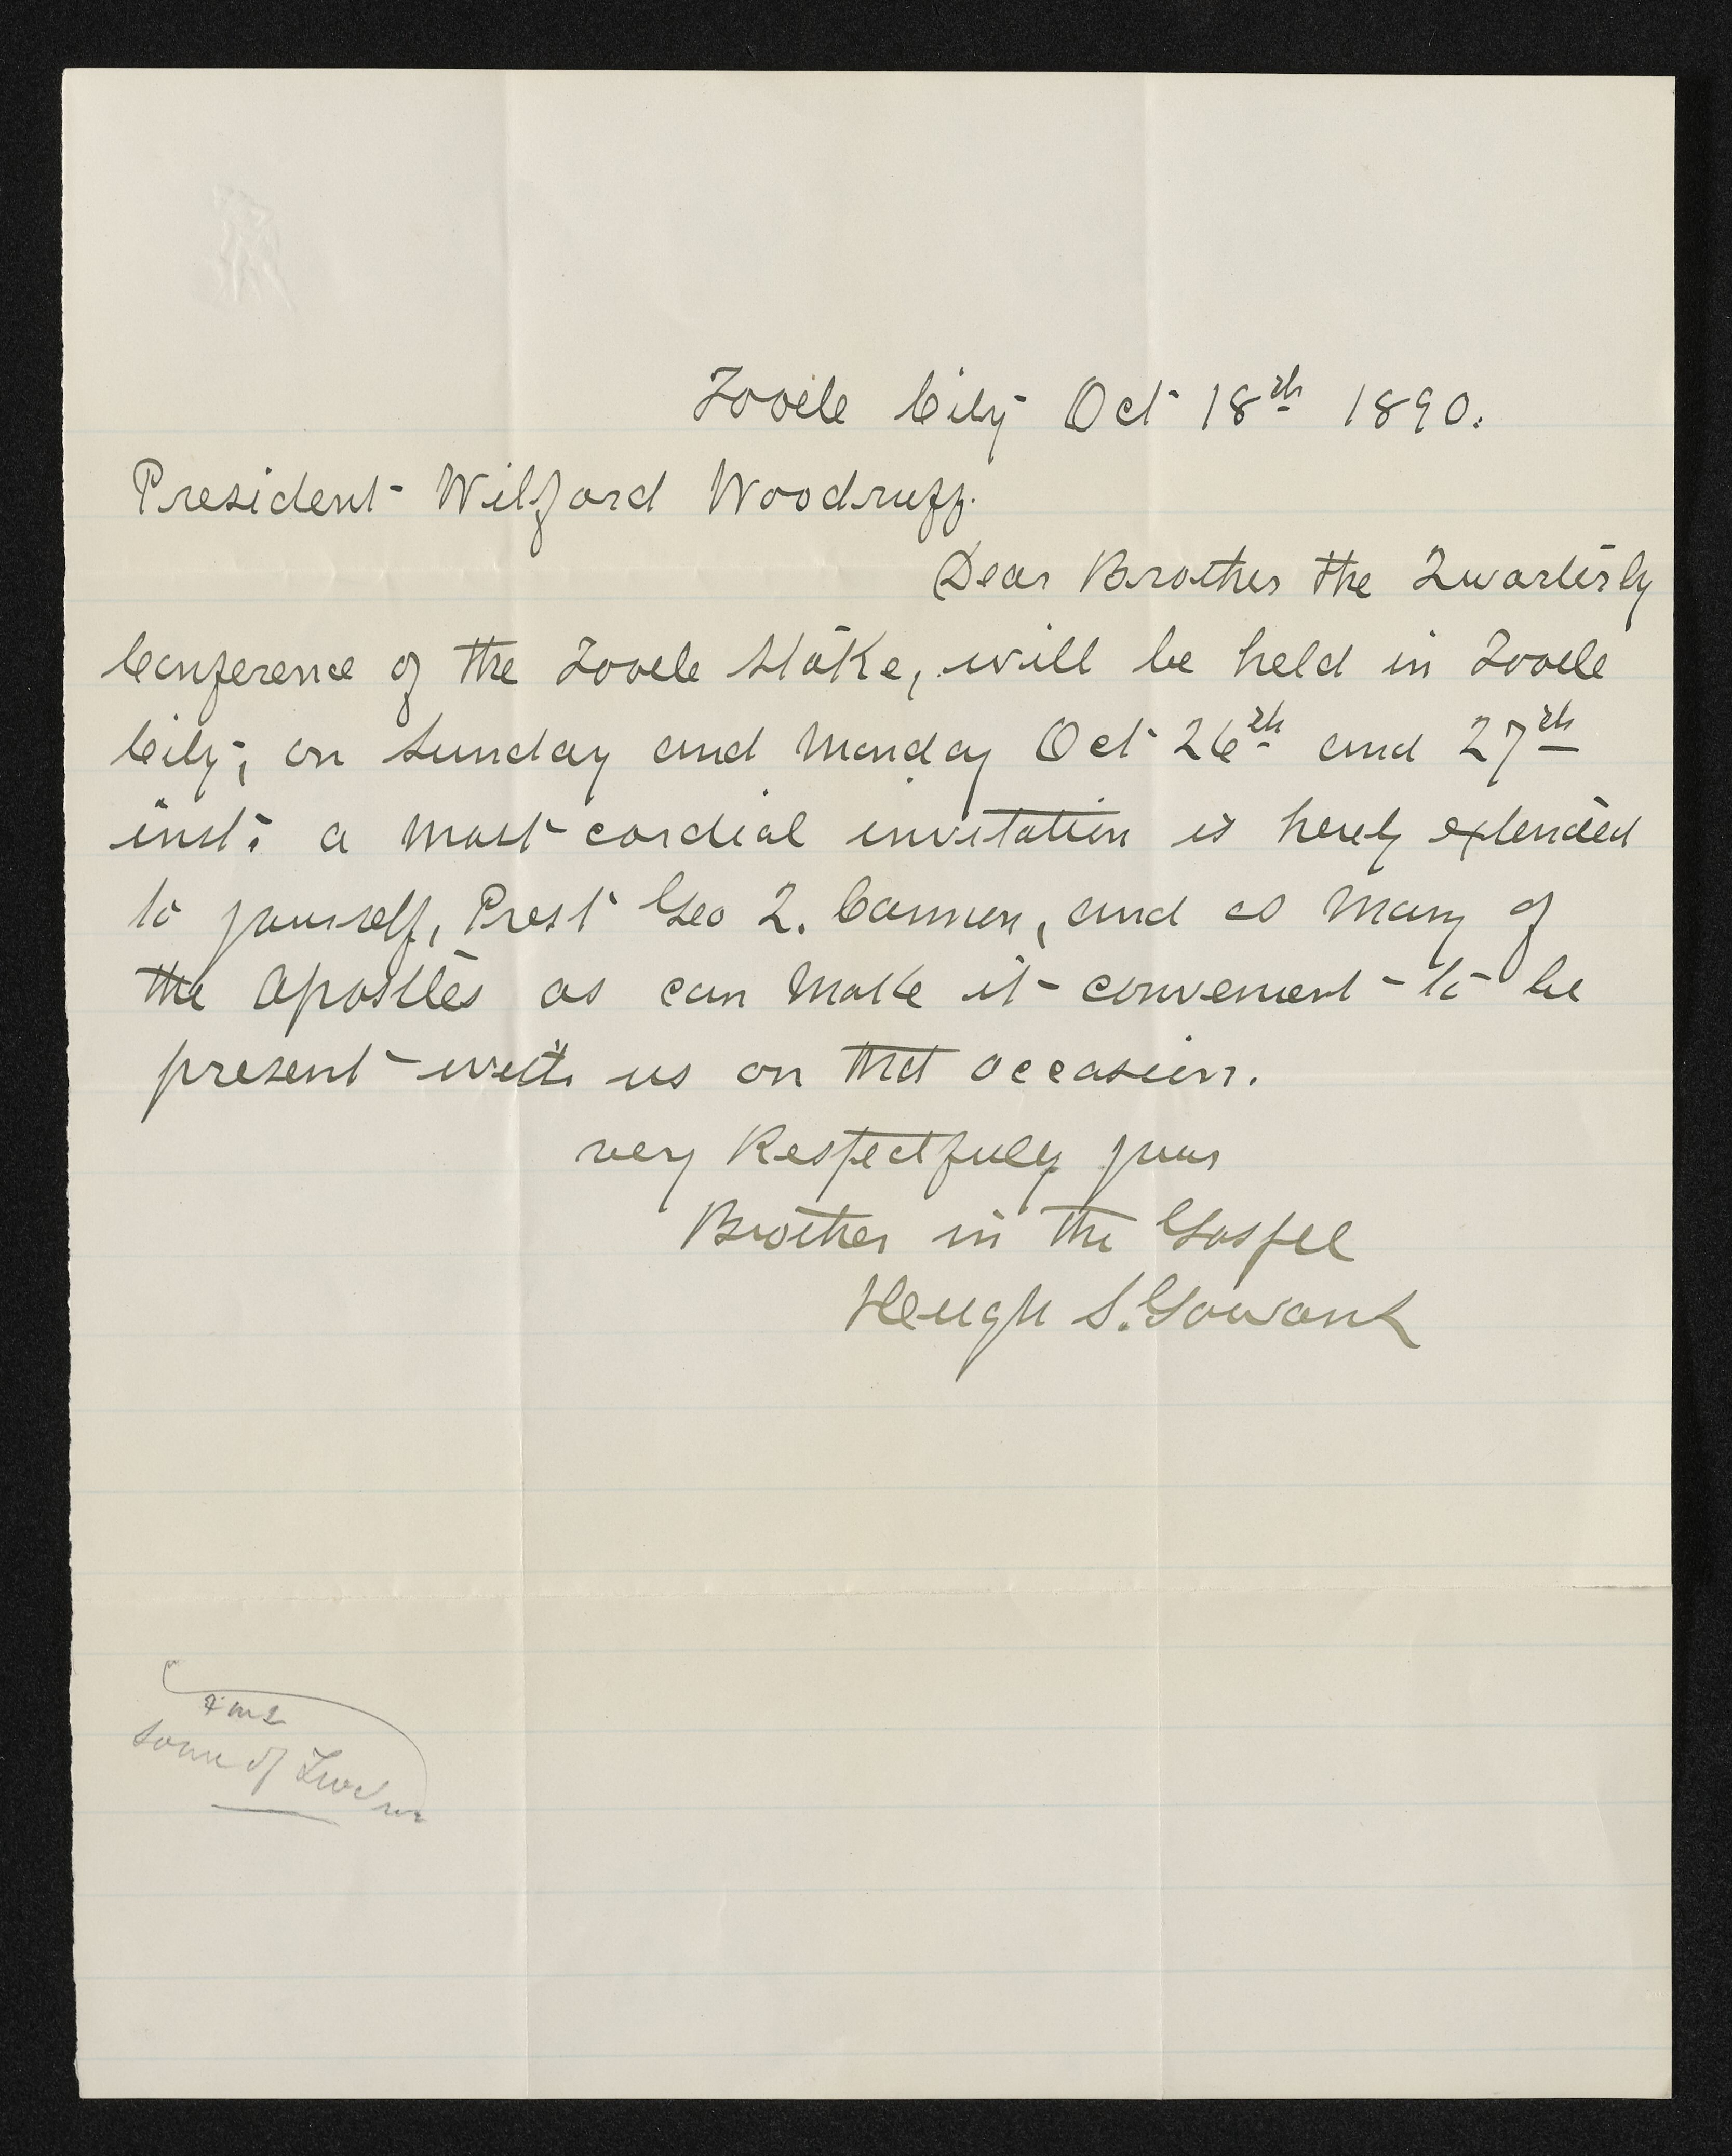 Tooele City Oct 18th 1890.
President Wilford Woodruff.
Dear Brother the Quarterly
Conference of the Tooele Stake, will be held in Tooele
City, on Sunday and Monday Oct 26th and 27th
inst. a most cordial invitation is herely extended
to yourself, Prest Geo Q. Cannon, and as many of
the Apostles as can make it convenient to be
present with us on that occasion.
very Respectfuly your
Brother in the Gospel
Heugh S. Gowans
some of Twelve